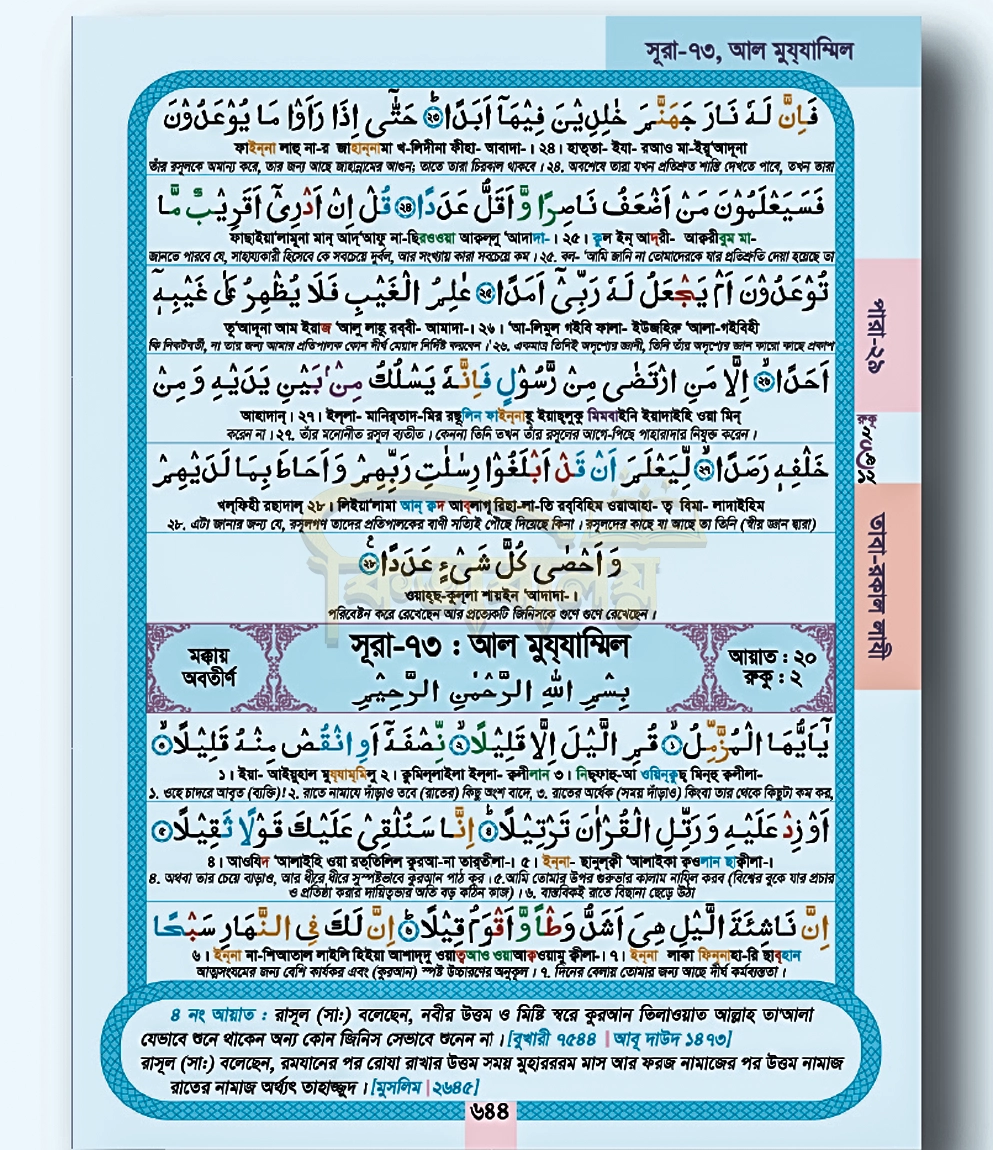 সূরা-৭৩, আল মুয্যাম্মিল
فَاِنَّ لَهٗ نَارَ جَهَنَّمَ خٰلِدِيْنَ فِيْهَاۤ اَبَدًا ﴿۲۳﴾ حَتّٰۤى اِذَا رَاَوْا مَا يُوْعَدُوْنَ
ফাইন্না লাহূ না-র জাহান্নামা খ-লিদীনা ফীহা- আবাদা-। ২৪। হাত্তা- ইযা- রআও মা-ইয়ূ‘আদূনা
তাঁর রসূলকে অমান্য করে, তার জন্য আছে জাহান্নামের আগুন; তাতে তারা চিরকাল থাকবে। ২৪. অবশেষে তারা যখন প্রতিশ্রুত শাস্তি দেখতে পাবে, তখন তারা
فَسَيَعْلَمُوْنَ مَنْ اَضْعَفُ نَاصِرًا وَّ اَقَلُّ عَدَدًا ﴿۲۴﴾ قُلْ اِنْ اَدْرِيْۤ اَقَرِيْبٌ مَّا
ফাছাইয়া‘লামূনা মান্ আদ্‘আফু না-ছিরওওয়া আক্বল্লু ‘আদাদা-। ২৫। কুল ইন্ আদ্রী- আক্বরীবুম মা-
জানতে পারবে যে, সাহায্যকারী হিসেবে কে সবচেয়ে দুর্বল, আর সংখ্যায় কারা সবচেয়ে কম। ২৫. বল- ‘আমি জানি না তোমাদেরকে যার প্রতিশ্রুতি দেয়া হয়েছে তা
تُوْعَدُوْنَ اَمْ يَجْعَلُ لَهٗ رَبِّيْۤ اَمَدًا ﴿۲۵﴾ عٰلِمُ الْغَيْبِ فَلَا يُظْهِرُ عَلٰى غَيْبِهٖۤ
তূ‘আদূনা আম ইয়াজ ‘আলু লাহূ রব্বী- আমাদা-। ২৬। ‘আ-লিমুল গইবি ফালা- ইউজহিরু ‘আলা-গইবিহী
কি নিকটবর্তী, না তার জন্য আমার প্রতিপালক কোন দীর্ঘ মেয়াদ নির্দিষ্ট করবেন। ২৬. একমাত্র তিনিই অদৃশ্যের জ্ঞানী, তিনি তাঁর অদৃশ্যের জ্ঞান কারো কাছে প্রকাশ
اَحَدًا ﴿۲۶﴾ اِلَّا مَنِ ارْتَضٰى مِنْ رَّسُوْلٍ فَاِنَّهٗ يَسْلُكُ مِنْۢ بَيْنِ يَدَيْهِ وَ مِنْ
আহাদান্। ২৭। ইল্লা- মানির্তাদ-মির রছূলিন ফাইন্নাহূ ইয়াছ্লুকু মিমবাইনি ইয়াদাইহি ওয়া মিন্
করেন না। ২৭. তাঁর মনোনীত রসূল ব্যতীত। কেননা তিনি তখন তাঁর রসূলের আগে-পিছে পাহারাদার নিযুক্ত করেন।
خَلْفِهٖ رَصَدًا ﴿۲۷﴾ لِّيَعْلَمَ اَنْ قَدْ اَبْلَغُوْا رِسٰلٰتِ رَبِّهِمْ وَ اَحَاطَ بِمَا لَدَيْهِمْ
খল্ফিহী রছাদাল্ ২৮। লিইয়া‘লামা আন্ ক্বদ আব্লাগূ রিছা-লা-তি রব্বিহিম ওয়াআহা- ত্ব বিমা- লাদাইহিম
২৮. এটা জানার জন্য যে, রসূলগণ তাদের প্রতিপালকের বাণী সত্যিই পৌছে দিয়েছে কিনা। রসূলদের কাছে যা আছে তা তিনি (স্বীয় জ্ঞান দ্বারা)
وَ اَحْصٰى كُلَّ شَيْءٍ عَدَدًا ﴿۲۸﴾
ওয়াহ্ছ-কুল্লা শায়ইন ‘আদাদা-।
পরিবেষ্টন করে রেখেছেন আর প্রত্যেকটি জিনিসকে গুণে গুণে রেখেছেন।
পারা-২৯
রুকু
তাবা-রকাল লাযী
মক্কায় অবতীর্ণ
সূরা-৭৩ : আল মুয্যাম্মিল
আয়াত : ২০
রুকু : ২
بِسْمِ اللّٰهِ الرَّحْمٰنِ الرَّحِيْمِ
يٰۤاَيُّهَا الْمُزَّمِّلُ ﴿۱﴾ قُمِ الَّيْلَ اِلَّا قَلِيْلًا ﴿۲﴾ نِّصْفَهٗۤ اَوِ انْقُصْ مِنْهُ قَلِيْلًا ﴿۳﴾
১। ইয়া- আইয়ুহাল মুয্যাম্মিলু ২। কুমিল্লাইলা ইল্লা- ক্বলীলান ৩। নিছ্ফাহু-আ ওয়িন্কুছ্ মিন্হু ক্বলীলা-
১. ওহে চাদরে আবৃত (ব্যক্তি)! ২. রাতে নামাযে দাঁড়াও তবে (রাতের) কিছু অংশ বাদে, ৩. রাতের অর্ধেক (সময় দাঁড়াও) কিংবা তার থেকে কিছুটা কম কর,
اَوْ زِدْ عَلَيْهِ وَ رَتِّلِ الْقُرْاٰنَ تَرْتِيْلًا ﴿۴﴾ اِنَّا سَنُلْقِيْ عَلَيْكَ قَوْلًا ثَقِيْلًا ﴿۵﴾
৪। আওযিদ ‘আলাইহি ওয়া রত্তিলিল ক্বুরআ-না তার্তীলা-। ৫। ইন্না- ছানুল্ক্বী ‘আলাইকা ক্বওলান ছাক্বীলা-।
৪. অথবা তার চেয়ে বাড়াও, আর ধীরে ধীরে সুস্পষ্টভাবে কুরআন পাঠ কর। ৫.আমি তোমার উপর গুরুভার কালাম নাযিল করব (বিশ্বের বুকে যার প্রচার
ও প্রতিষ্ঠা করার দায়িত্বভার অতি বড় কঠিন কাজ)। ৬. বাস্তবিকই রাতে বিছানা ছেড়ে উঠা
اِنَّ نَاشِئَةَ الَّيْلِ هِيَ اَشَدُّ وَطْاً وَّ اَقْوَمُ قِيْلًا ﴿۶﴾ اِنَّ لَكَ فِي النَّهَارِ سَبْحًا
৬। ইন্না না-শিআতাল লাইলি হিইয়া আশাদ্দু ওয়াত্বআও ওয়াআক্বওয়ামু ক্বীলা-। ৭। ইন্না লাকা ফিন্নাহা-রি ছাব্হান
আত্মসংযমের জন্য বেশি কার্যকর এবং (কুরআন) স্পষ্ট উচ্চারণের অনুকূল। ৭. দিনের বেলায় তোমার জন্য আছে দীর্ঘ কর্মব্যস্ততা।
৪ নং আয়াত : রাসূল (সা:) বলেছেন, নবীর উত্তম ও মিষ্টি স্বরে কুরআন তিলাওয়াত আল্লাহ তা'আলা
যেভাবে শুনে থাকেন অন্য কোন জিনিস সেভাবে শুনেন না। [বুখারী ৭৫৪৪ | আবূ দাউদ ১৪৭৩]
রাসূল (সা:) বলেছেন, রমযানের পর রোযা রাখার উত্তম সময় মুহাররম মাস আর ফরজ নামাজের পর উত্তম নামাজ
রাতের নামাজ অর্থ্যৎ তাহাজ্জুদ। [মুসলিম | ২৬৪৫]
৬৪৪